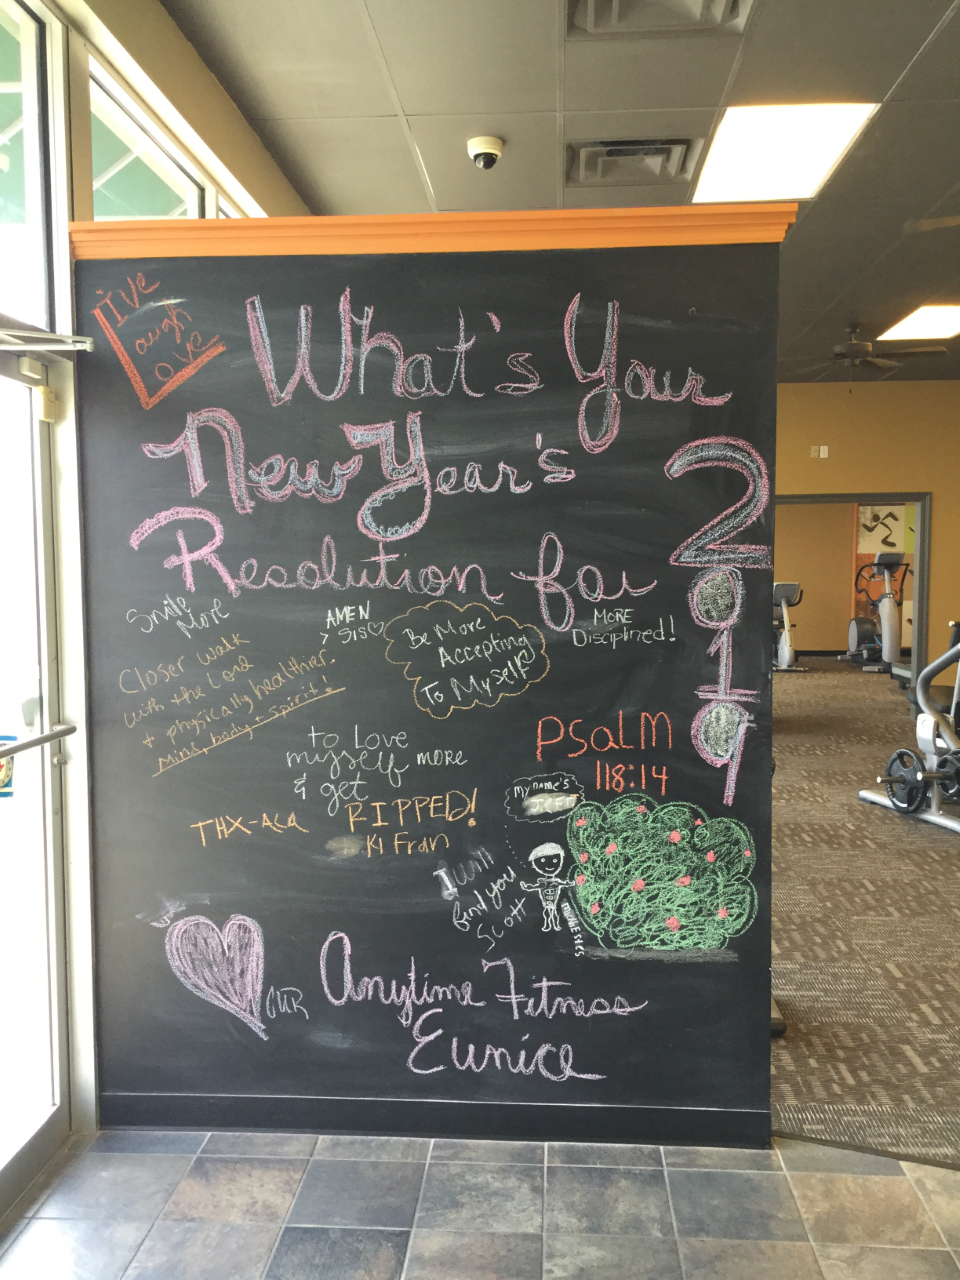 Live
Laugh
Love
What's Your
New Year's
Resolution for
2019
Smile
More
AMEN
Sis
Be More
Accepting
To Myself
MORE
Disciplined!
Closer walk
with the Lord
+ physically healthier.
Mind, body + Spirit!
to Love
myself more
& get
RIPPED!
Psalm
118:14
My name's
Jeff
I will
find you
Scott
OUR
Anytime Fitness
Eunice